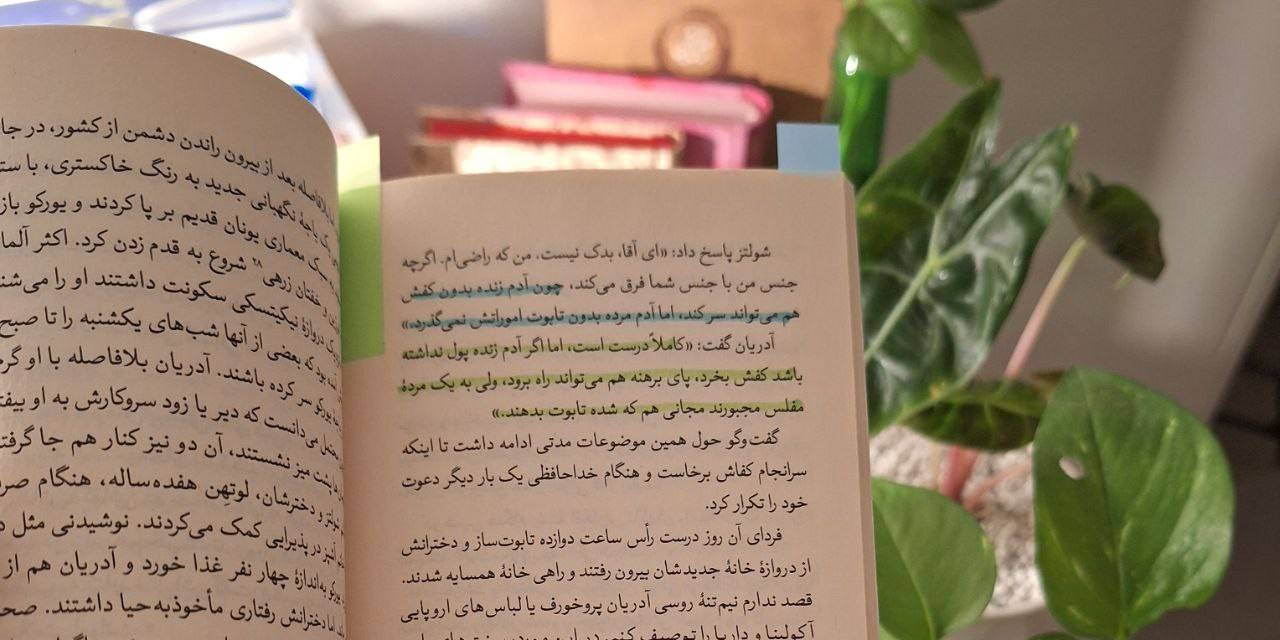 شولتز پاسخ داد: «ای آقا، بدک نیست. من که راضی‌ام. اگرچه
جنس من با جنس شما فرق می‌کند، چون آدم زنده بدون کفش
هم می‌تواند سر کند، اما آدم مرده بدون تابوت اموراتش نمی‌گذرد.»
آدریان گفت: «کاملاً درست است، اما اگر آدم زنده پول نداشته
باشد کفش بخرد، پای برهنه هم می‌تواند راه برود، ولی به یک مردهٔ
مفلس مجبورند مجانی هم که شده تابوت بدهند.»
گفت‌وگو حول همین موضوعات مدتی ادامه داشت تا اینکه
سرانجام کفاش برخاست و هنگام خداحافظی یک بار دیگر دعوت
خود را تکرار کرد.
فردای آن روز درست رأس ساعت دوازده تابوت‌ساز و دخترانش
از دروازهٔ خانهٔ جدیدشان بیرون رفتند و راهی خانهٔ همسایه شدند.
قصد ندارم نیم‌تنهٔ روسی آدریان پروخورف یا لباس‌های اروپایی
آکولینا و داریا را توصیف کنم
بلافاصله بعد از بیرون راندن دشمن از کشور، در
باجهٔ نگهبانی جدید به رنگ خاکستری، با
سبک معماری یونان قدیم بر پا کردند و یورکو
و خفتان زرهی ۲۸ شروع به قدم زدن کرد. اکثر
دروازهٔ نیکیتسکی سکونت داشتند او را
بود که بعضی از آنها شب‌های یکشنبه را تا صبح
یورکو سر کرده باشند. آدریان بلافاصله با او
می‌دانست که دیر یا زود سروکارش به او
پشت میز نشستند، آن دو نیز کنار هم جا
شولتز و دخترشان، لوتهن هفده‌ساله، هنگام
در پذیرایی کمک می‌کردند. نوشیدنی مثل
یورکو به‌اندازهٔ چهار نفر غذا خورد و آدریان هم از
اما دخترانش رفتاری مأخوذبه‌حیا داشتند.